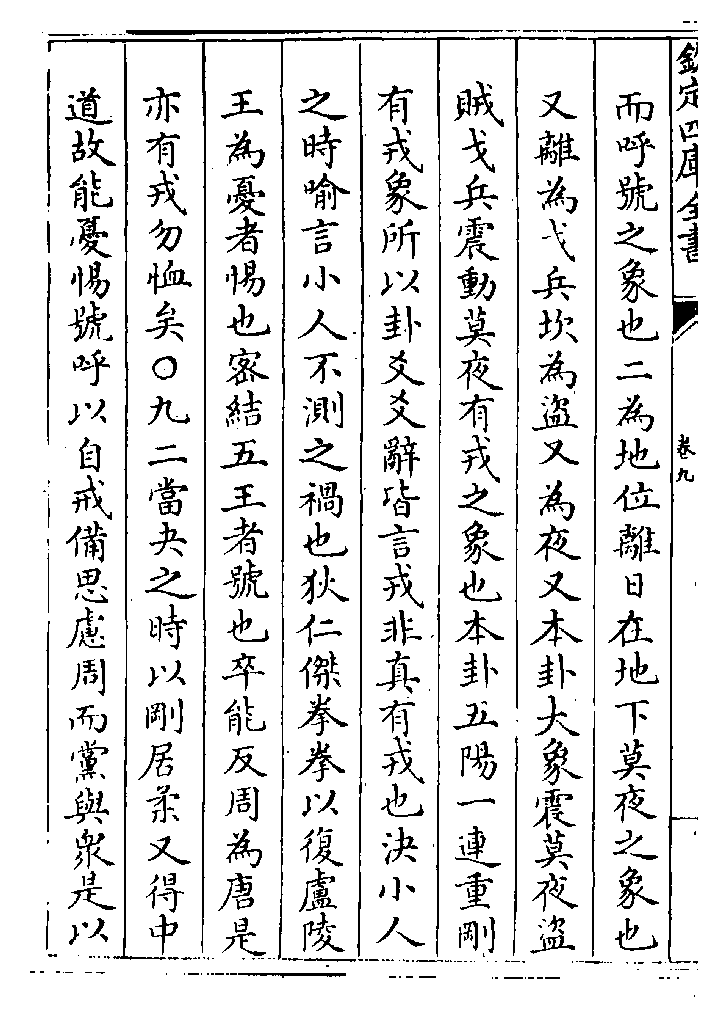 欽定四庫全書
卷九
而呼號之象也二為地位離日在地下莫夜之象也
又離為戈兵坎為盜又為夜又本卦大象震莫夜盜
賊戈兵震動莫夜有戎之象也本卦五陽一連重剛
有戎象所以卦爻爻辭皆言戎非真有戎也決小人
之時喻言小人不測之禍也狄仁傑拳拳以復盧陵
王為憂者惕也密結五王者號也卒能反周為唐是
亦有戎勿恤矣〇九二當夬之時以剛居柔又得中
道故能憂惕號呼以自戒備思慮周而黨與衆是以